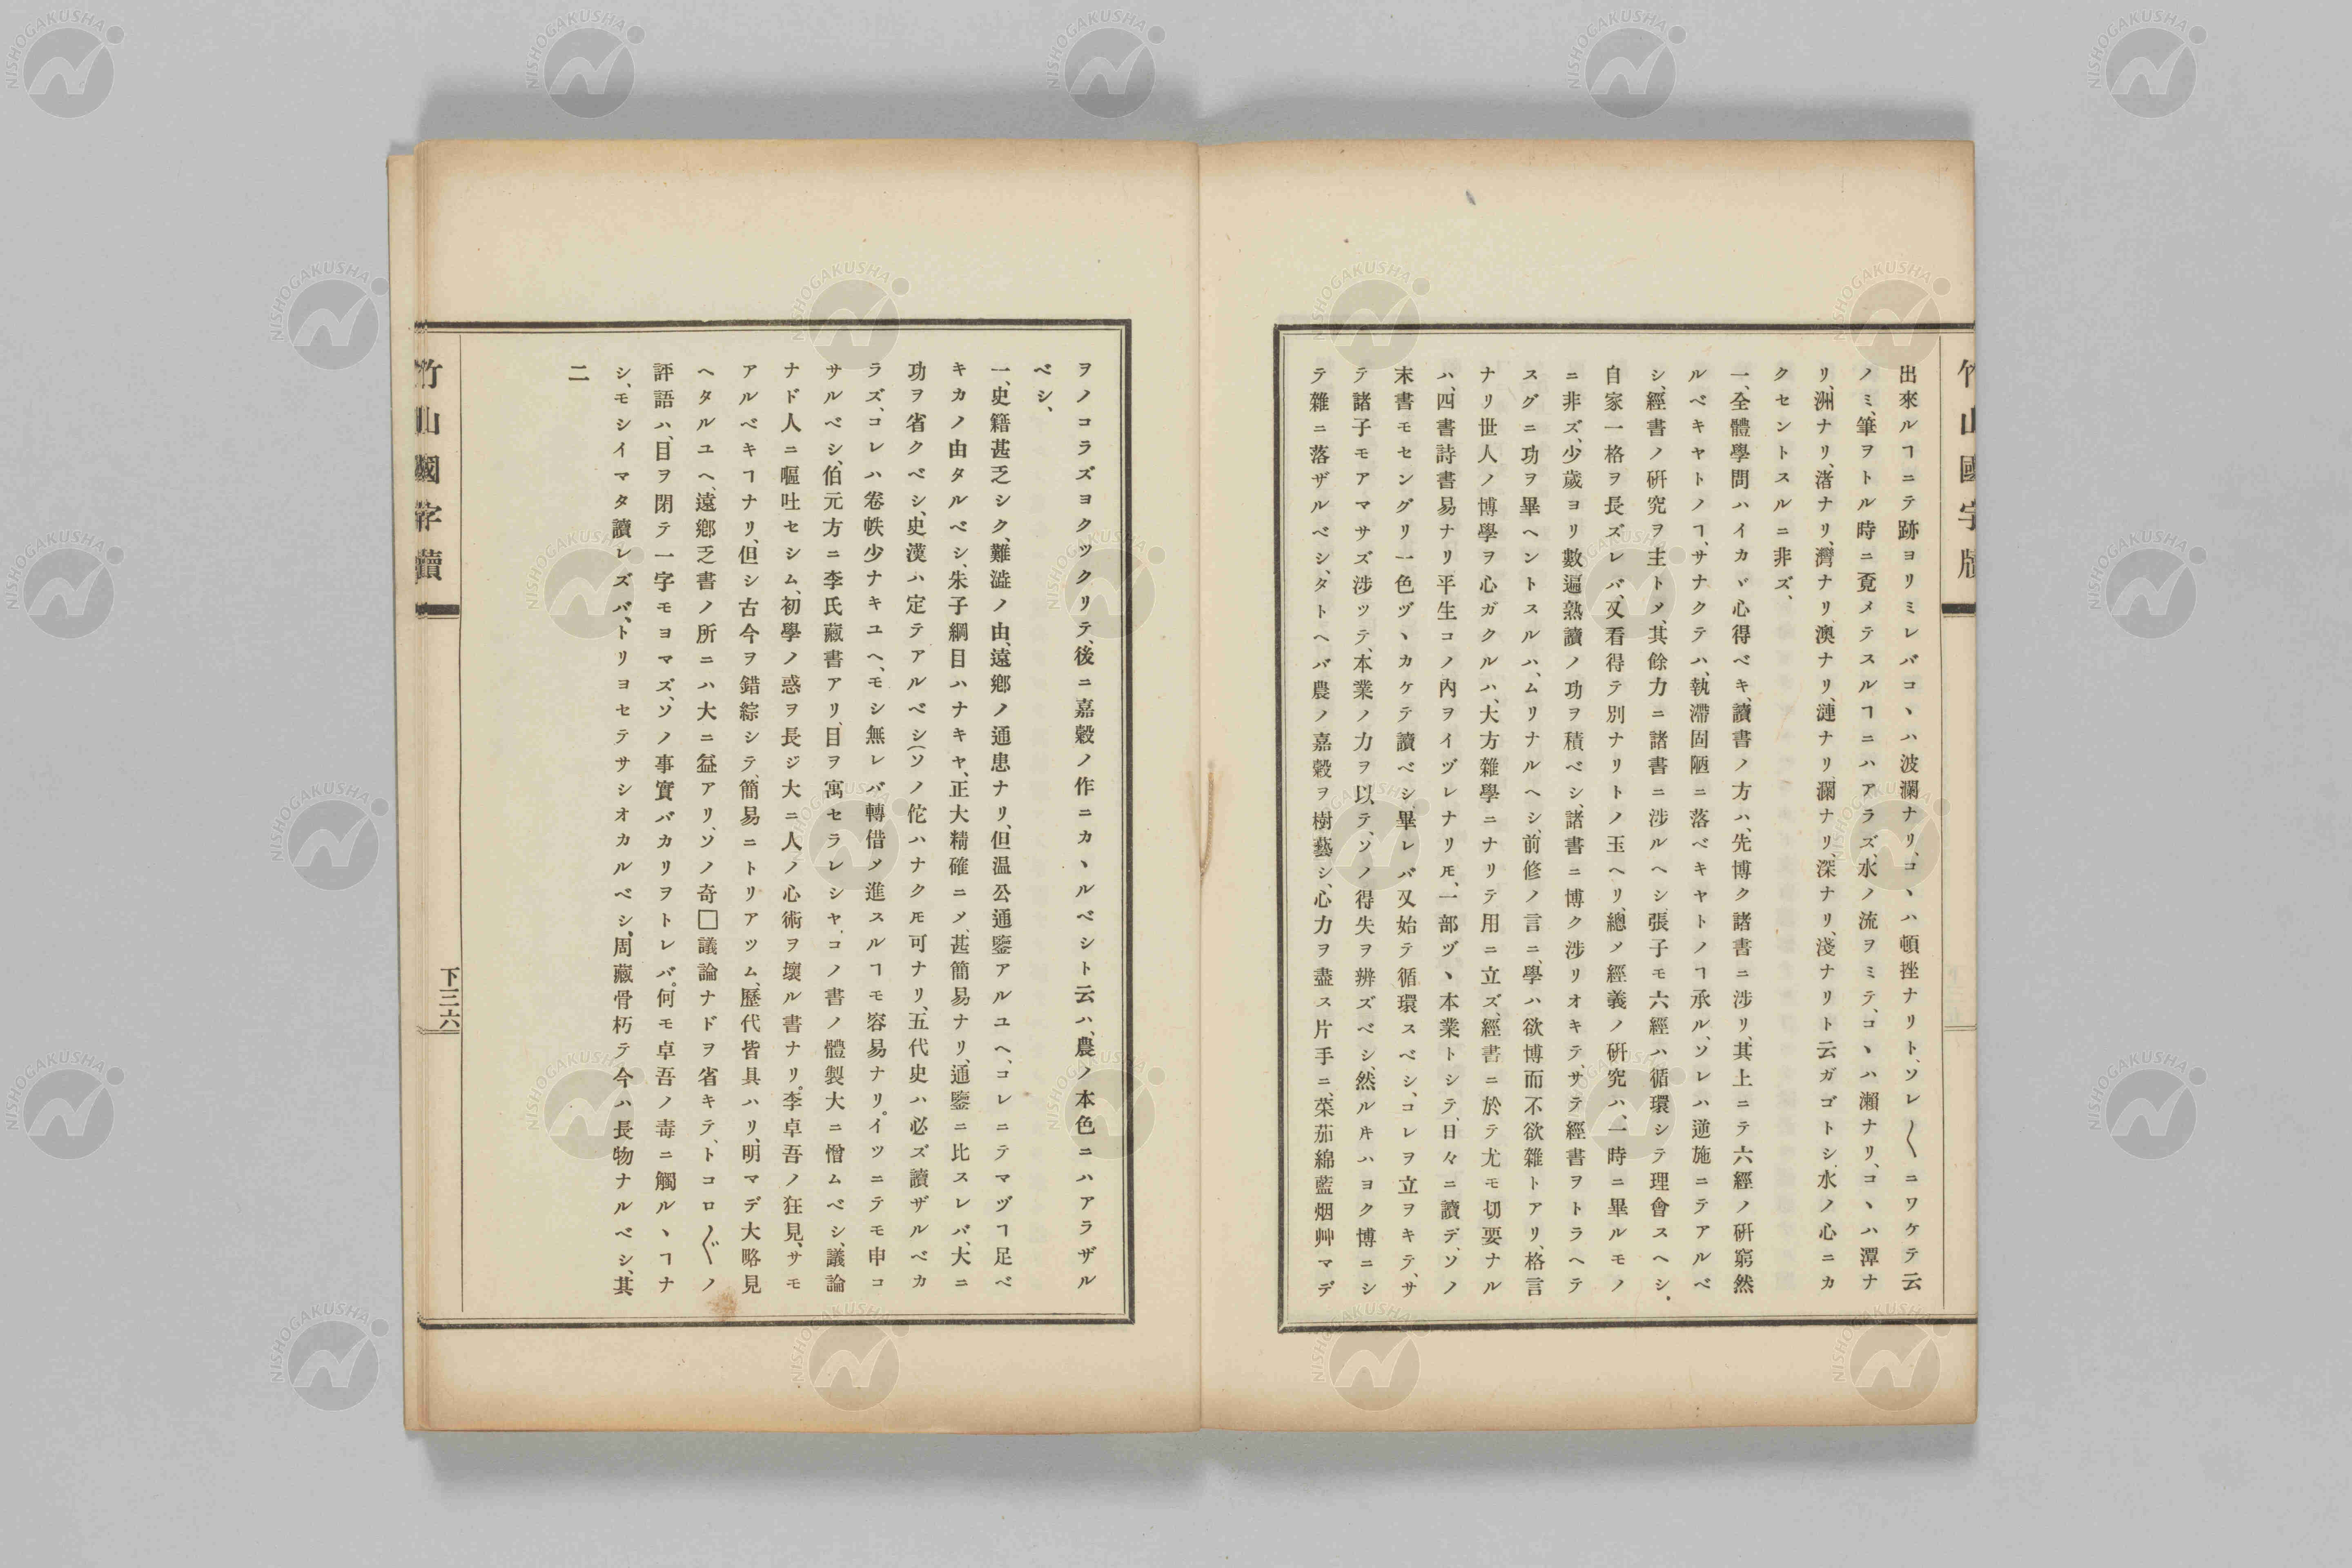 竹山國字牘
出來ルヿニテ跡ヨリミレバコヽハ波瀾ナリ、コヽハ頓挫ナリト、ソレ〱ニワケテ云
ノミ、筆ヲトル時ニ覔メテスルヿニハアラズ、水ノ流ヲミテ、コヽハ瀬ナリ、コヽハ潭ナ
リ、洲ナリ、渚ナリ、灣ナリ、澳ナリ、漣ナリ、瀾ナリ、深ナリ、淺ナリト云ガゴトシ、水ノ心ニカ
クセントスルニ非ズ、
一、全體學問ハイカヾ心得ベキ、讀書ノ方ハ、先博ク諸書ニ涉リ、其上ニテ六經ノ研窮然
ルベキヤトノヿ、サナクテハ、執滯固陋ニ落ベキヤトノヿ承ル、ソレハ逆施ニテアルベ
シ、經書ノ研究ヲ主トメ、其餘力ニ諸書ニ涉ルヘシ、張子モ六經ハ循環シテ理會スヘシ、
自家一格ヲ長ズレバ、又看得テ別ナリトノ玉ヘリ、總メ經義ノ研究ハ、一時ニ畢ルモノ
ニ非ズ、少歲ヨリ數遍熟讀ノ功ヲ積ベシ、諸書ニ博ク涉リオキテ、サテ經書ヲトラヘテ
スグニ功ヲ畢ヘントスルハ、ムリナルヘシ、前修ノ言ニ、學ハ欲博而不欲雜トアリ、格言
ナリ世人ノ博學ヲ心ガクルハ、大方雜學ニナリテ用ニ立ズ、經書ニ於テ尤モ切要ナル
ハ、四書詩書易ナリ平生コノ內ヲイヅレナリトモ、一部ヅヽ本業トシテ、日々ニ讀デ、ソノ
末書モセングリ一色ヅヽカケテ讀ベシ、畢レバ又始テ循環スベシ、コレヲ立ヲキテ、サ
テ諸子モアマサズ涉ツテ、本業ノ力ヲ以テ、ソノ得失ヲ辨ズベシ、然ル𪜈ハヨク博ニシ
テ雜ニ落ザルベシ、タトヘバ農ノ嘉穀ヲ樹藝シ、心力ヲ盡ス片手ニ、菜茄綿藍烟艸マデ
ヲノコラズヨクツクリテ、後ニ嘉穀ノ作ニカヽルベシト云ハ、農ノ本色ニハアラザル
ベシ、
一、史籍甚乏シク、難澁ノ由、遠鄉ノ通患ナリ、但温公通鑒アルユヘ、コレニテマヅヿ足ベ
キカノ由タルベシ、朱子綱目ハナキヤ、正大精確ニメ、甚簡易ナリ、通鑒ニ比スレバ、大ニ
功ヲ省クベシ、史漢ハ定テアルベシ(ソノ佗ハナクモ可ナリ、五代史ハ必ズ讀ザルベカ
ラズ、コレハ卷帙少ナキユヘ、モシ無レバ轉借メ進スルヿモ容易ナリ。イツニテモ申コ
サルベシ、伯元方ニ李氏藏書アリ、目ヲ寓セラレシヤ、コノ書ノ體製大ニ憎ムベシ、議論
ナド人ニ嘔吐セシム、初學ノ惑ヲ長ジ大ニ人ノ心術ヲ壞ル書ナリ。李卓吾ノ狂見、サモ
アルベキヿナリ、但シ古今ヲ錯綜シテ、簡易ニトリアツム、歷代皆具ハリ、明マデ大略見
ヘタルユヘ、遠鄉乏書ノ所ニハ大ニ益アリ、ソノ奇□議論ナドヲ省キテ、トコロ〲ノ
評語ハ、目ヲ閉テ一字モヨマズ、ソノ事實バカリヲトレバ。何モ卓吾ノ毒ニ觸ルヽヿナ
シ、モシイマタ讀レズバ、トリヨセテサシオカルベシ、周藏骨朽テ今ハ長物ナルベシ、其
二
竹山國字牘
下三六